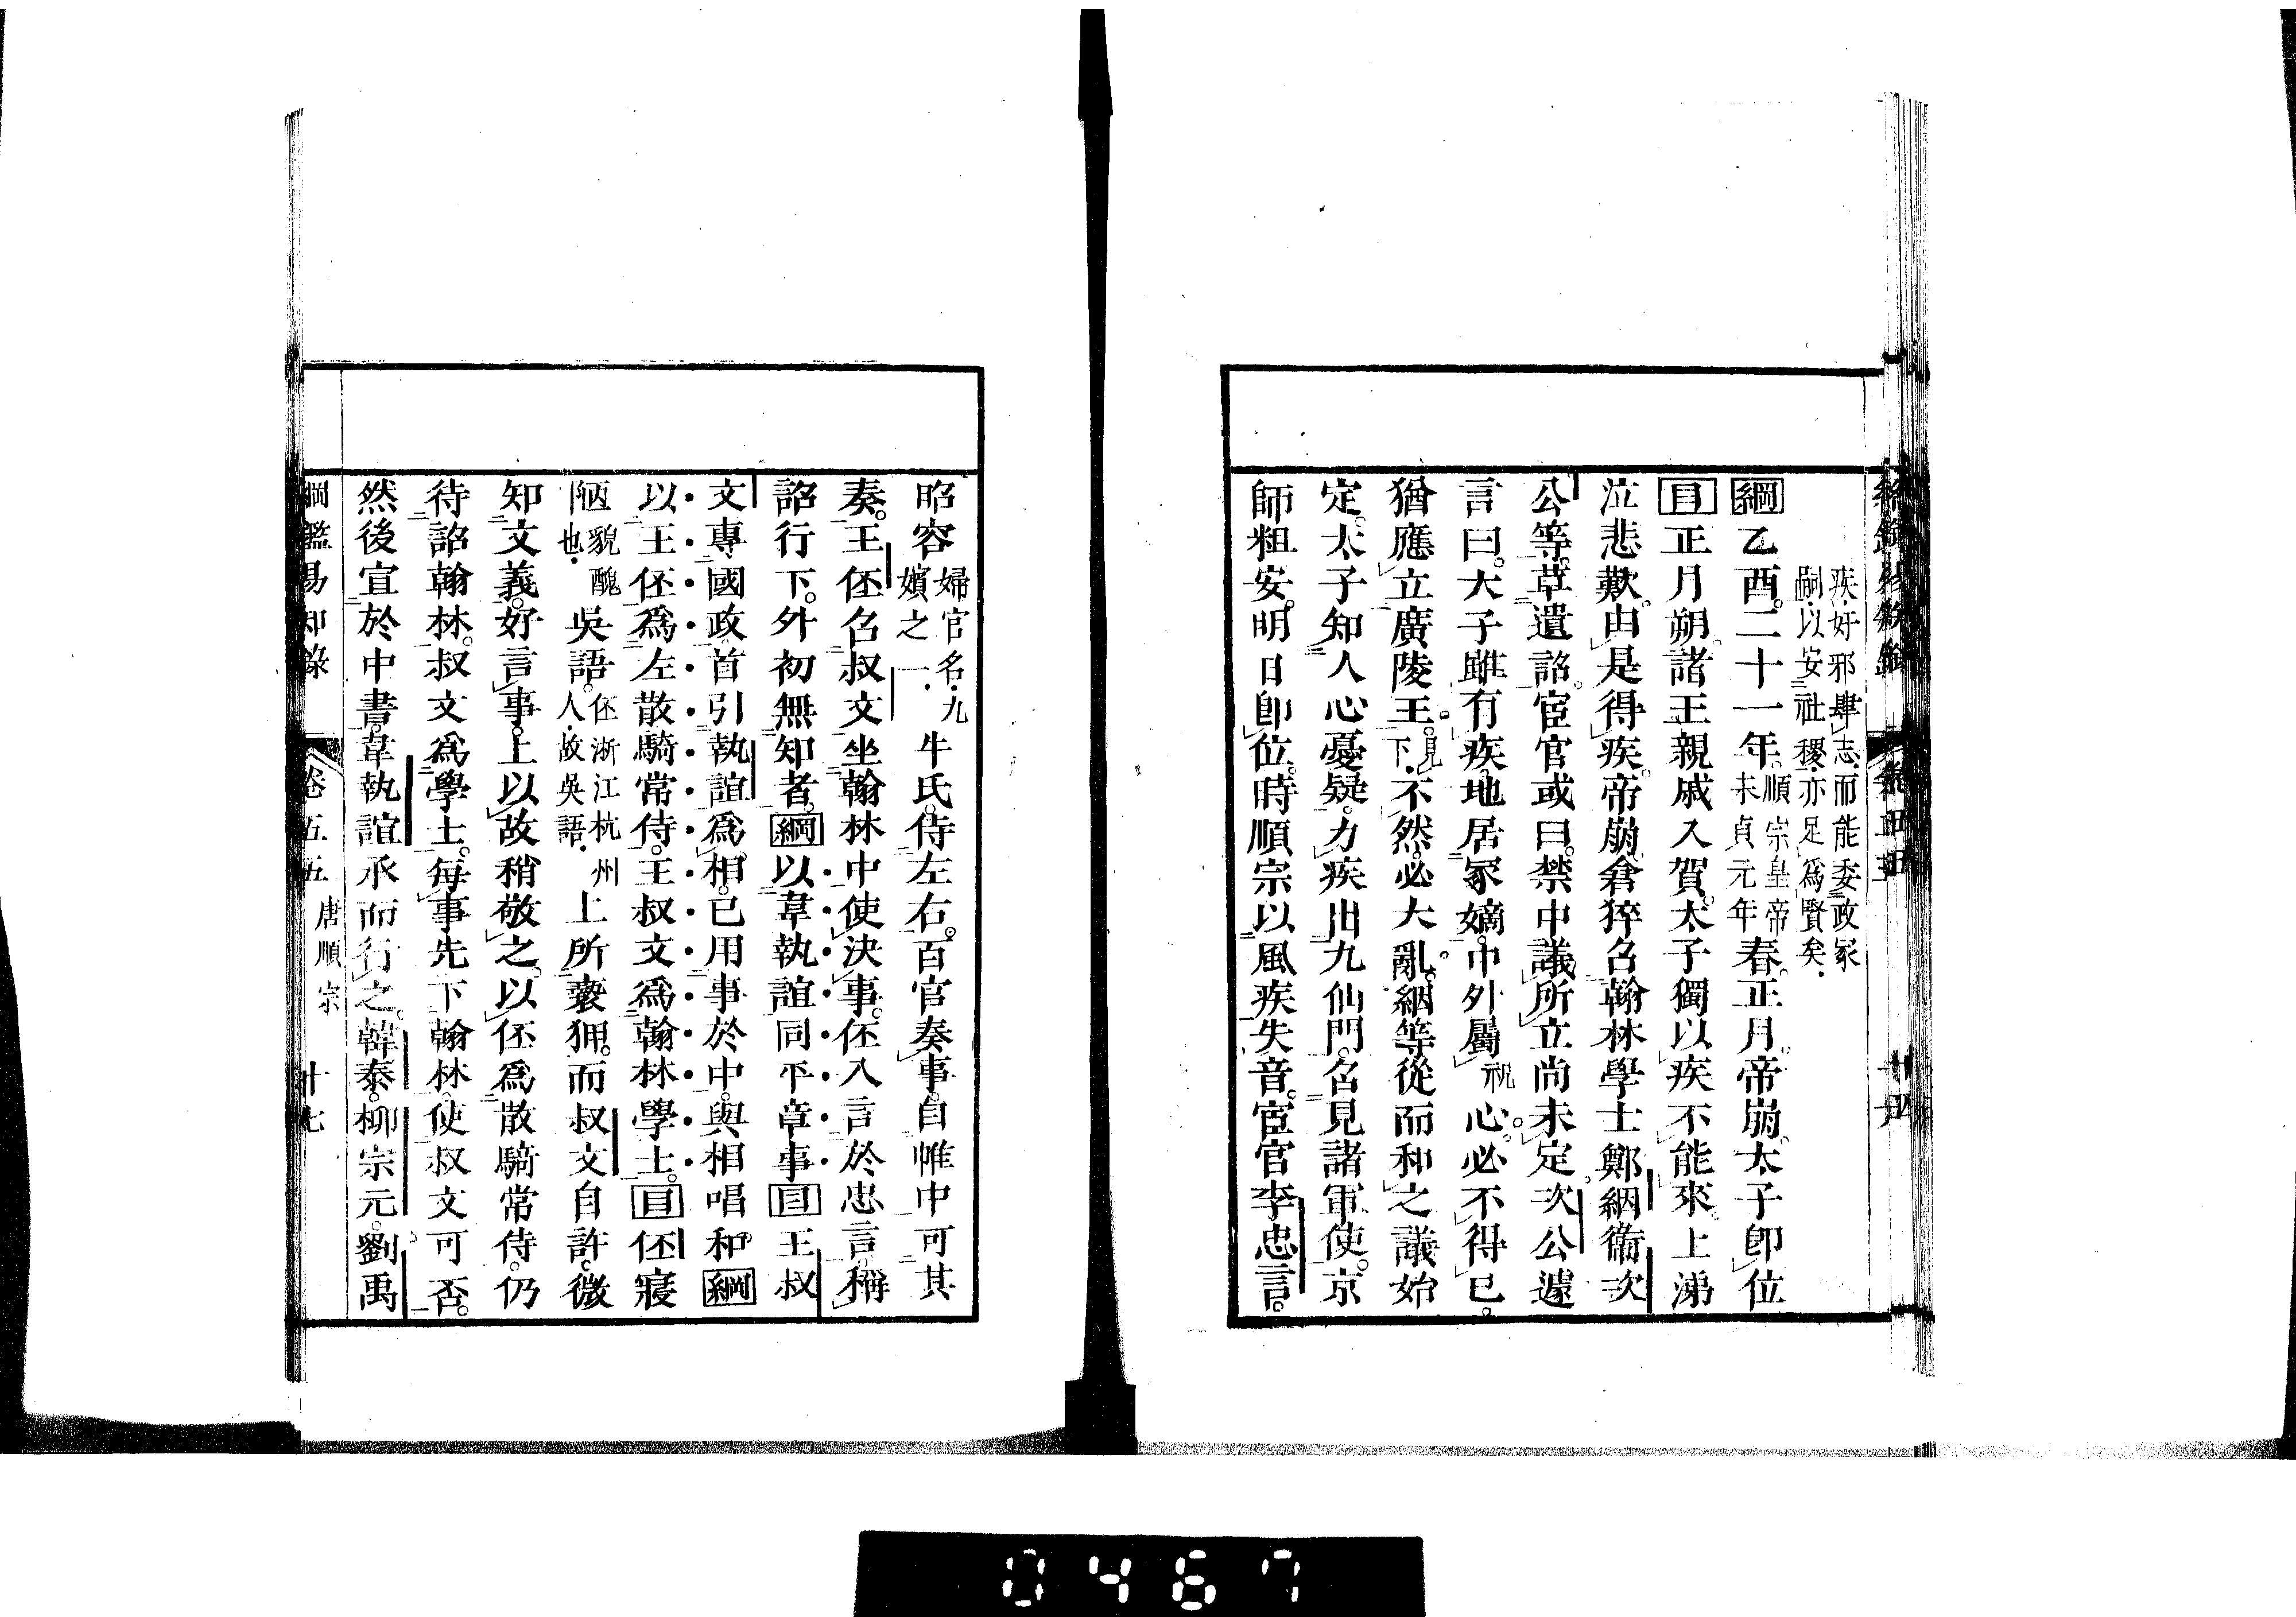 疾好邪肆志而能委政冢
嗣以安社稷亦足為賢矣
綱乙酉二十一年順宗皇帝未貞元年春正月帝崩太子卽位
目正月朔諸王親戚入賀太子獨以疾不能來上涕
泣悲歎由是得疾帝崩倉猝召翰林學士鄭絪衞次
公等草遺詔宦官或曰禁中議所立尚未定次公遽
言曰太子雖有疾地居冢嫡中外屬祝心必不得已
猶應立廣陵王見下不然必大亂絪等從而和之議始
定太子知人心憂疑力疾出九仙門召見諸軍使京
師粗安明日卽位時順宗以風疾失音宦官李忠言
昭容婦官名九嬪之一牛氏侍左右百官奏事自帷中可其
奏王伾召叔文坐翰林中使決事伾入言於忠言稱
詔行下外初無知者綱以韋執誼同平章事目王叔
文專國政首引執誼為相己用事於中與相唱和綱
以王伾爲左散騎常侍王叔文爲翰林學士目伾寢
陋貌醜也吳語伾浙江杭州人故吳語上所褻狎而叔文自許微
知文義好言事上以故稍敬之以伾爲散騎常侍仍
待詔翰林叔文爲學士每事先下翰林使叔文可否
然後宣於中書韋執誼承而行之韓泰柳宗元劉禹
綱鑑易知錄 卷五五 唐順宗 十七